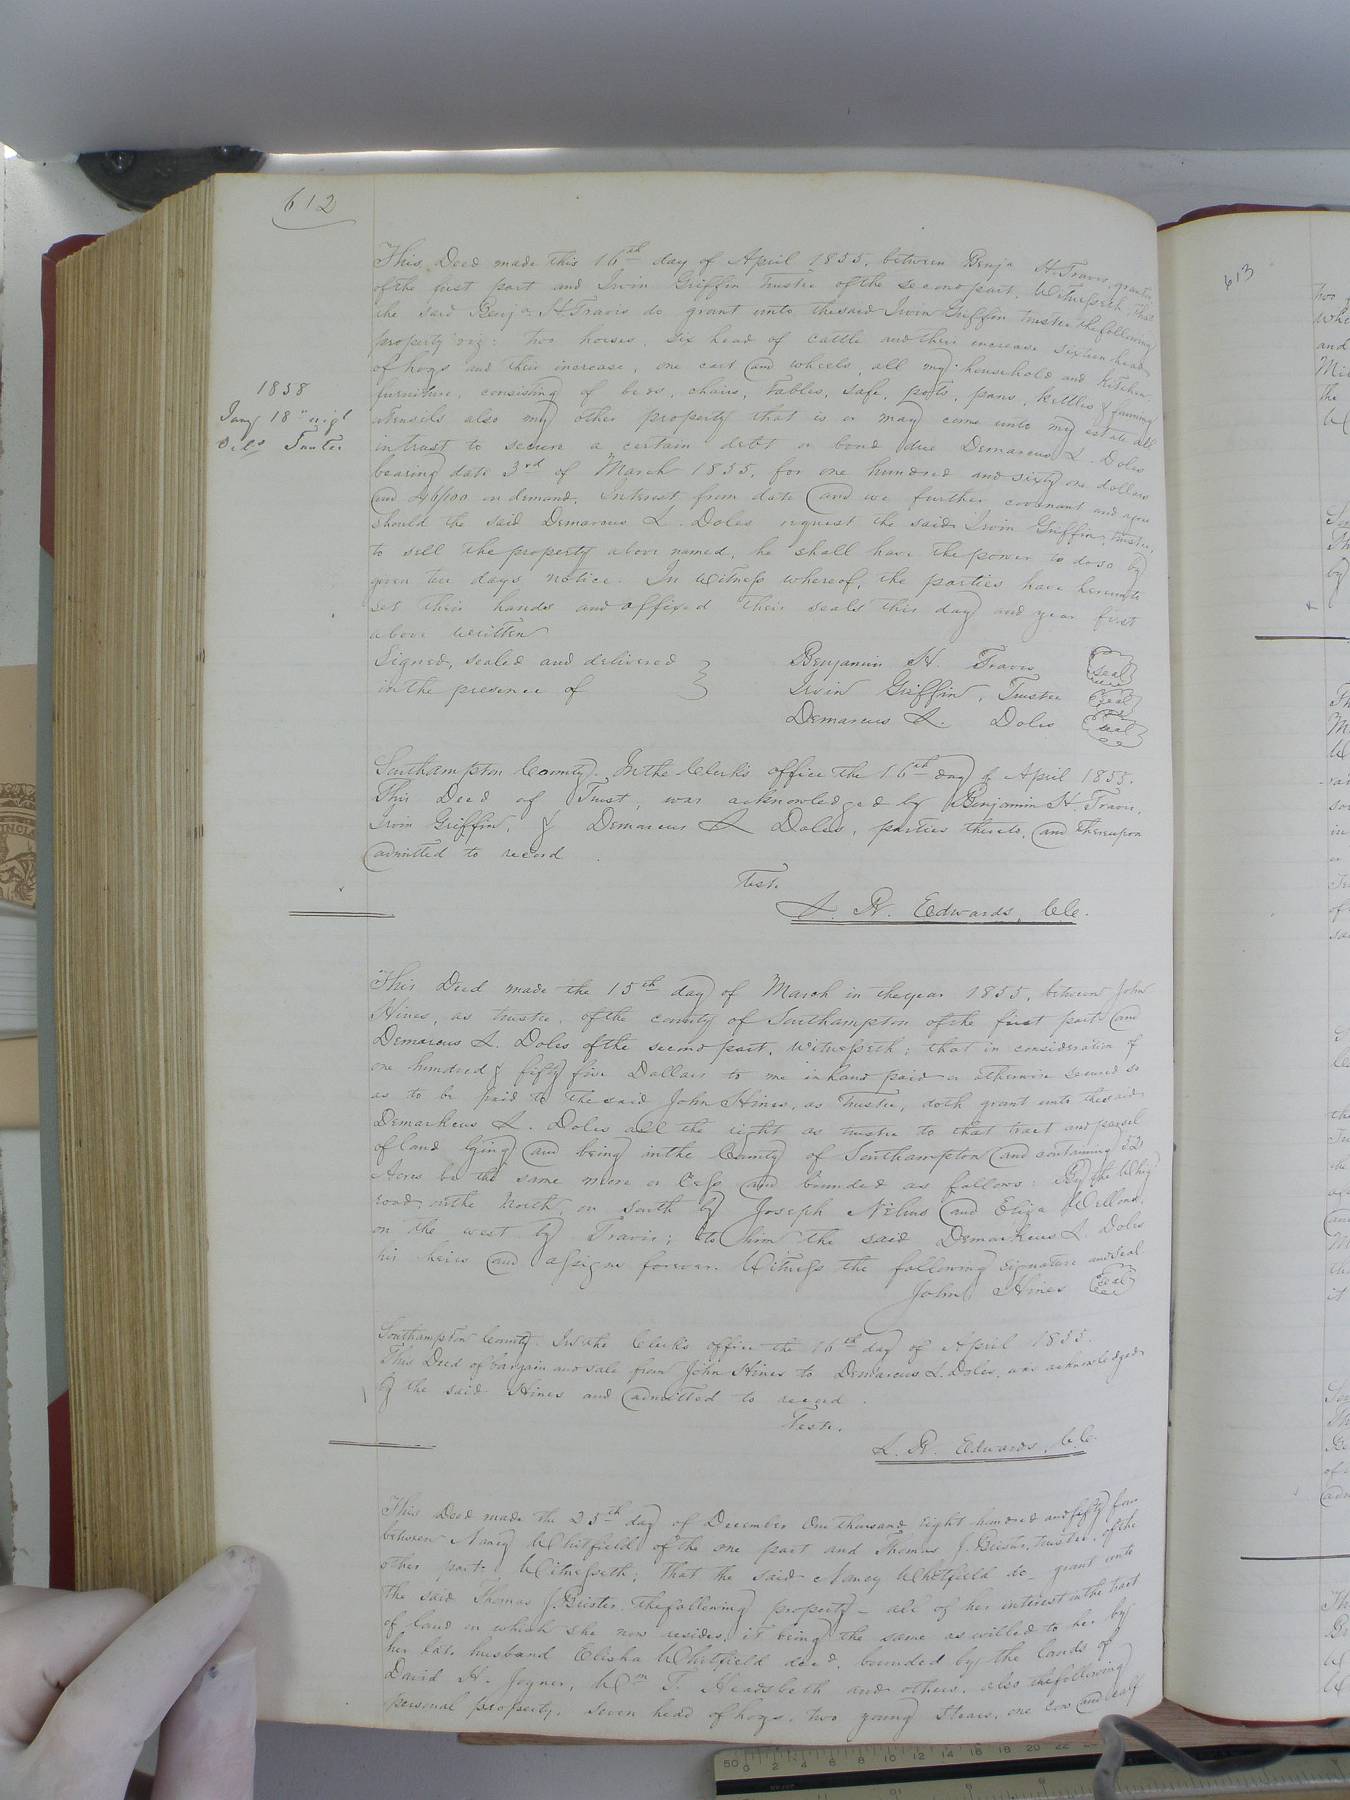 612
This Deed made this 16th day of April 1855, between Benja H. Travis, grantor,
of the first part and Irvin Griffin trustee of the second part, Witnesseth, that
the said Benja H Travis do grant unto the said Irvin Griffin trustee the following
property viz: two horses, six head of cattle and their increase sixteen head
of hogs and their increase, one cart and wheels, all my household and kitchen
furniture, consisting of beds, chairs, tables, safe, pots, pans, kettles & farming
utensils also my other property that is or may come unto my estate all
in trust to secure a certain debt or bond due Demarcus L. Doles
bearing date 3rd of March 1855, for one hundred and sixty one dollars
and 46/100 on demand, Interest from date and we further covenant and agree
should the said Demarcus L. Doles request the said Irvin Griffin, trustee,
to sell the property above named, he shall have the power to do so by
given ten days notice. In Witness whereof, the parties have hereunto
set their hands and affixed their seals this day and year first
above written
1858
Jany 18th
Trustee
Signed, sealed and delivered
in the presence of
Benjamin H. Travis seal
Irvin Griffin, Trustee seal
Demarcus L. Doles seal
Southampton County. In the Clerk's office the 16th day of April 1855.
This Deed of Trust, was acknowledged by Benjamin H. Travis,
Irvin Griffin, & Demarcus L Doles, parties thereto, and thereupon
admitted to record
Test.
L. R. Edwards, C.C.
This Deed made the 15th day of March in the year 1855, between John
Hines, as trustee, of the county of Southampton of the first part and
Demarcus L. Doles of the second part, Witnesseth; that in consideration of
one hundred & fifty five Dollars to me in hand paid or otherwise secured so
as to be paid to the said John Hines, as trustee, doth grant unto the said
Demarkeus L. Doles all the right as trustee to that tract and parsel
of land lying and being in the County of Southampton and containing 52
Acres be the same more or less and bounded as follows: By the
road on the North, on South by Joseph and Eliza
on the west by Travis; to him the said Demarkeus L. Doles
his heirs and assigns forever. Witness the following signature and seal.
John Hines seal
Southampton County. In the Clerk's office the 16th day of April 1855.
This Deed of bargain and sale from John Hines to Demarcus L. Doles, was acknowledged
by the said Hines and admitted to record.
Teste.
L. R. Edwards, C.C.
This Deed made the 25th day of December One thousand Eight hundred and fifty four
between Nancy Whitfield of the one part and Thomas J. trustee, of the
other part, Witnesseth; that the said Nancy Whitfield do grant unto
the said Thomas J. the following property – all of her interest in the tract
of land on which she now resides, it being the same as willed to her by
her late husband Elisha Whitfield decd, bounded by the lands of
David H. Joyner, Wm T. and others, also the following
personal property, seven head of hogs, two young steers, one cow and calf
613